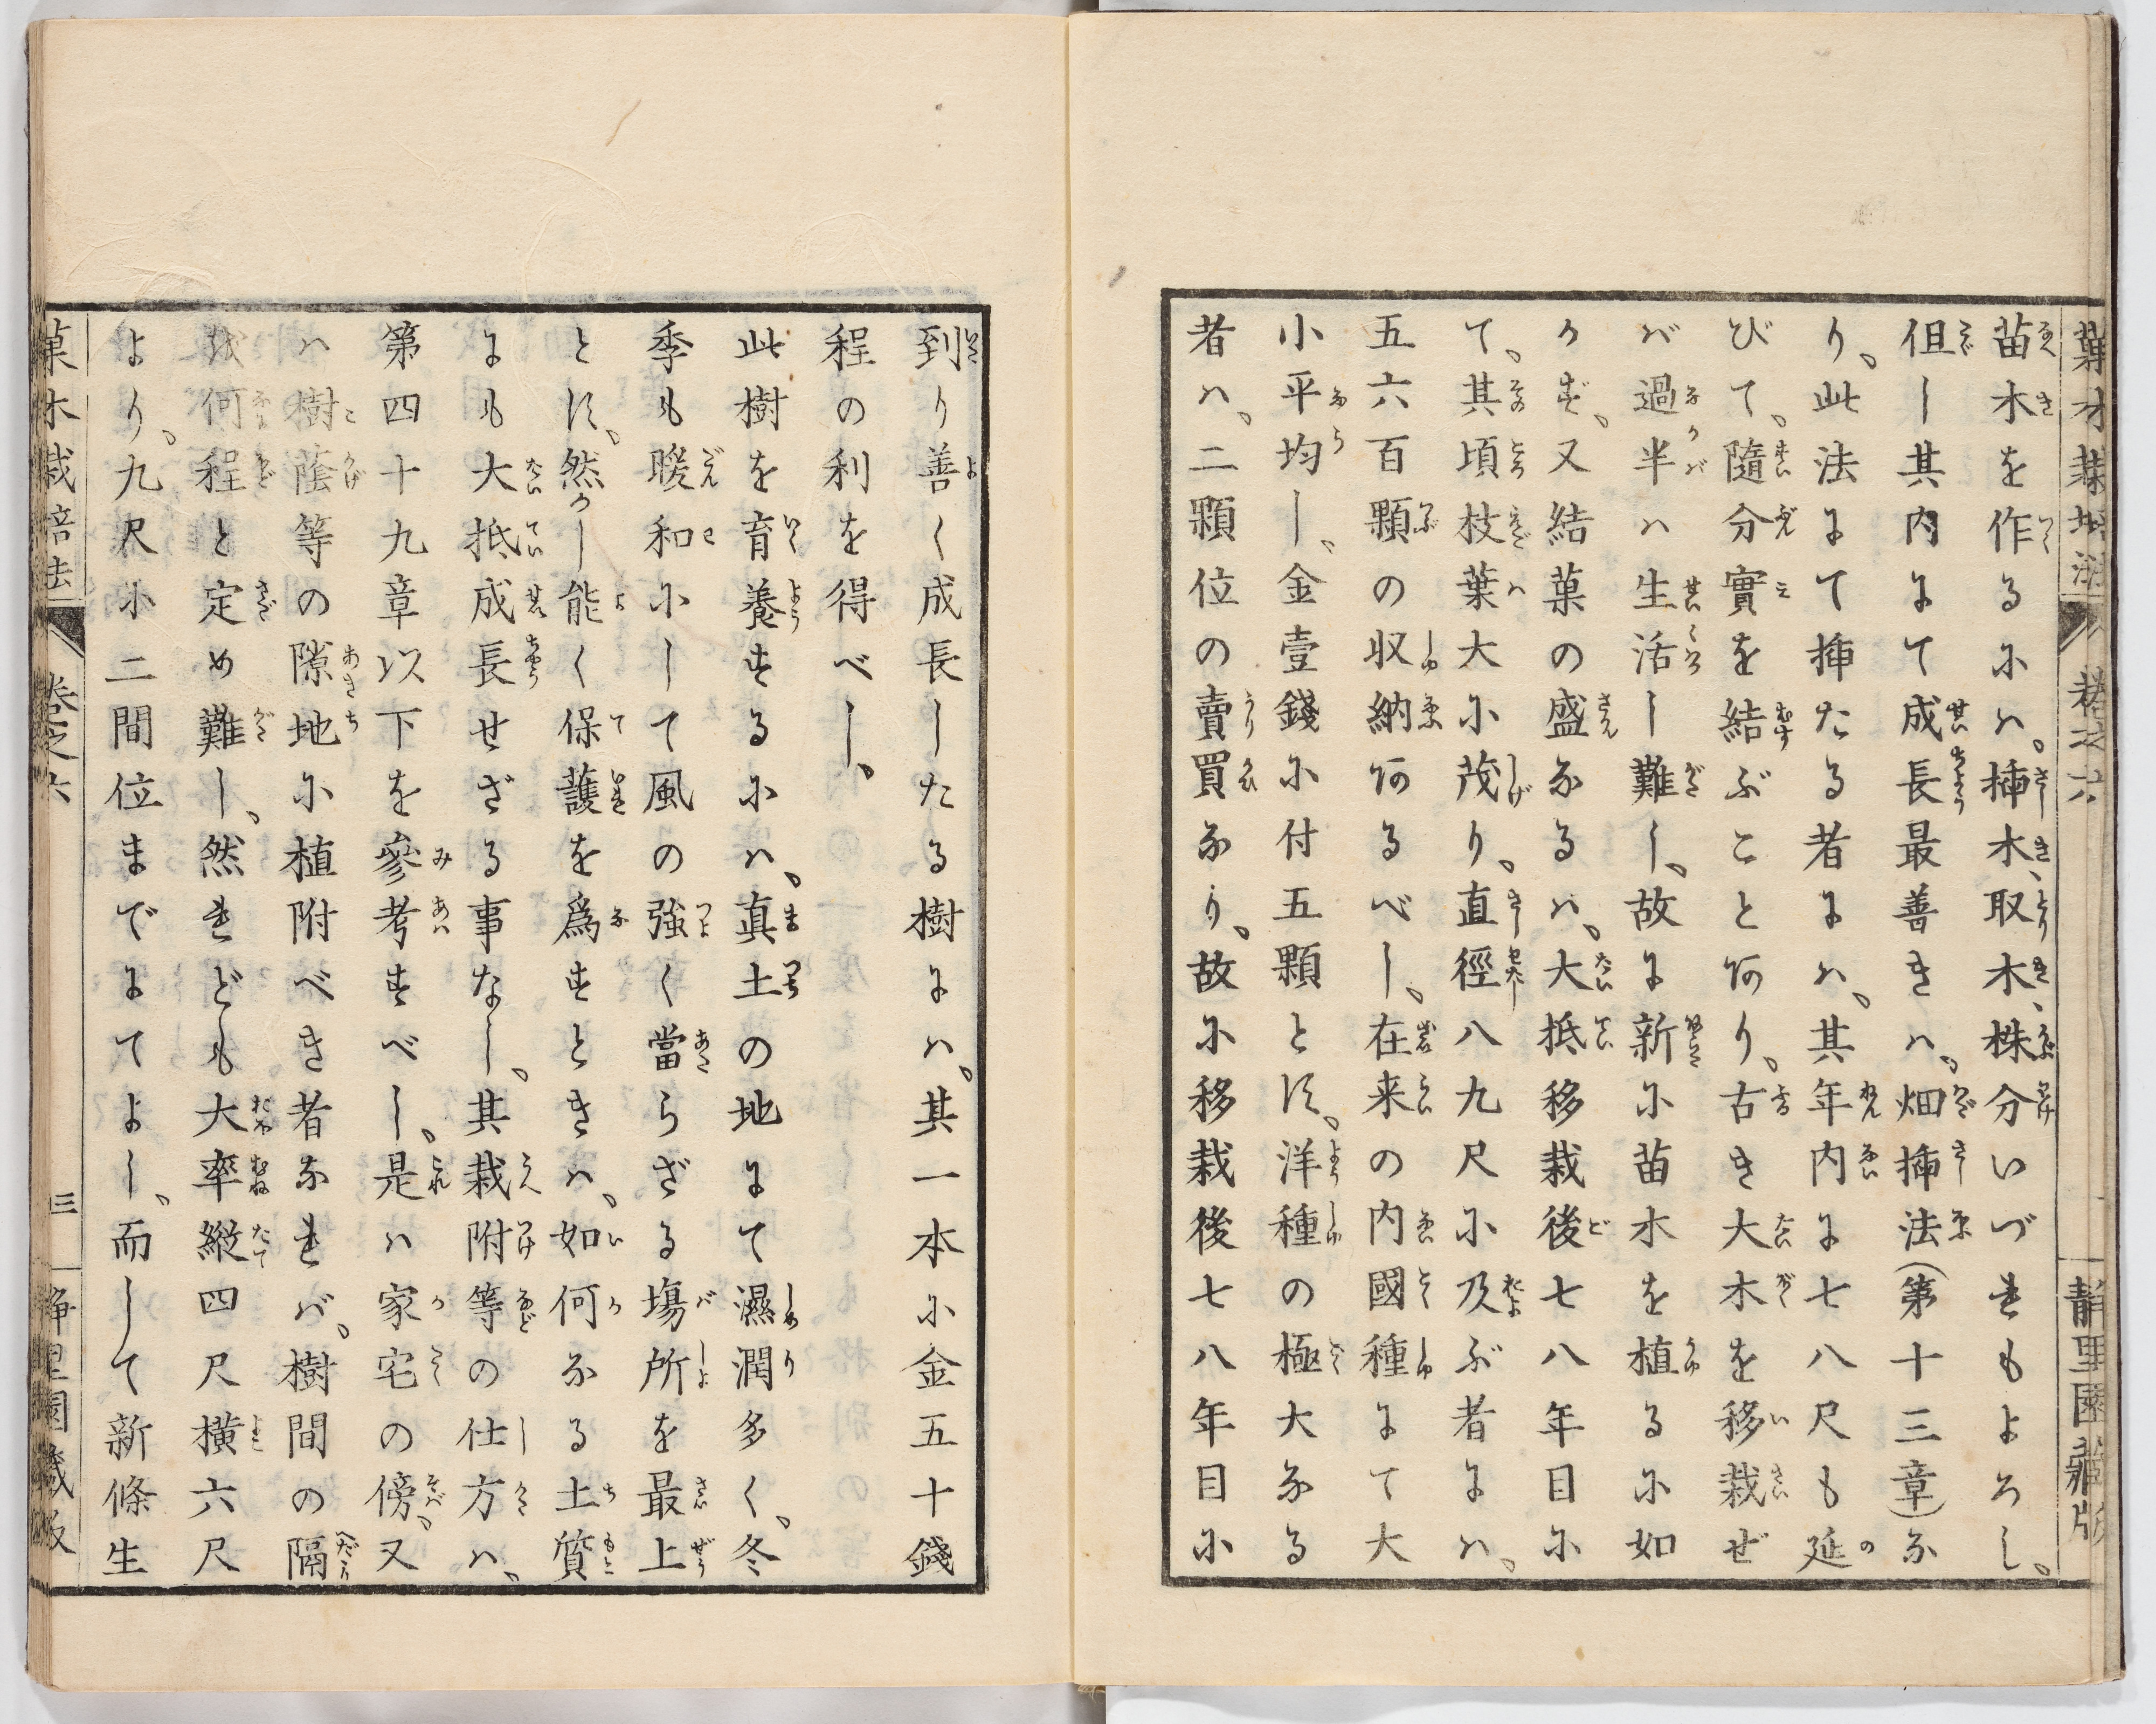 苗木を作るにハ、挿木、取木、株分いづれもよろし、
但し其内にて成長最善きハ、畑挿法(第十三章)な
り、此法にて挿たる者にハ、其年内に七八尺も延
びて、隨分實を結ぶこと何り、古き大木を移栽ぜ
バ過半ハ生活し難し、故に新に苗木を植るに如
かず、又結菓の盛なるハ、大抵移栽後七八年目に
て、其頃枝葉大に茂り、直徑八九尺に及ぶ者にハ、
五六百顆の収納何るべし、在来の内國種にて大
小平均し、金壹錢に付五顆とす、洋種の極大なる
者ハ、二顆位の賣買なり、故に移栽後七八年目に
菓木栽培法
卷之六
靜里園藏版
到り善く成長したる樹にハ、其一本に金五十錢
程の利を得べし、
此樹を育養するにハ、真土の地にて濕潤多く、冬
季も暖和にして風の強く當らざる塲所を最上
とす、然し能く保護を爲すときハ、如何なる土質
にも大抵成長せざる事なし、其栽附等の仕方ハ、
第四十九章以下を參考すべし、是ハ家宅の傍、又
ハ樹蔭等の隙地に植附べき者なれバ、樹間の隔
を何程と定め難し、然れども大率縱四尺橫六尺
より、九尺に二間位までにてよし、而して新條生
菓木栽培法
卷之六
三
靜里園藏版